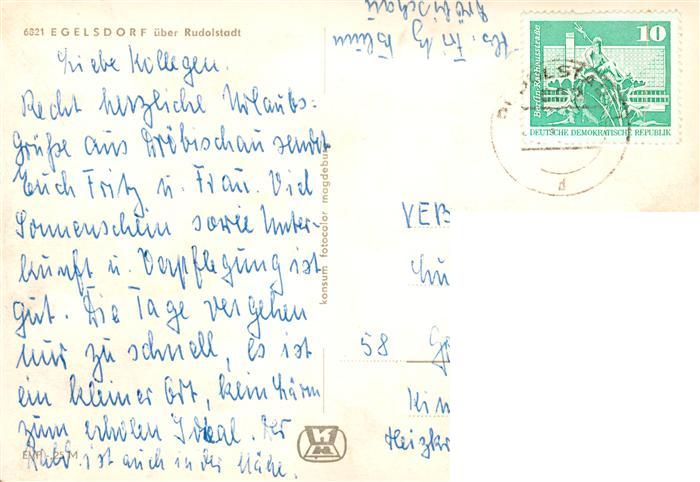 6821 EGELSDORF über Rudolstadt
Liebe Kollegen.
Recht herzliche Urlaubs-
grüße aus Dröbischau sendet
Euch Fritz u. Frau. Viel
Sonnenschein sowie Unter-
kunft u. Verpflegung ist
gut. Die Tage vergehen
nur zu schnell, es ist
ein kleiner Ort, kein Lärm
zum erholen Ideal. Der
ist auch in der Nähe.
EVP -,25 M
konsum fotocolor magdeburg
Abs. Fritz Blüm
Dröbischau
10
Berlin, Rathausstraße
DEUTSCHE DEMOKRATISCHE REPUBLIK
RUDOLSTADT
d
VEB
58 Go
Kin
Heizkr